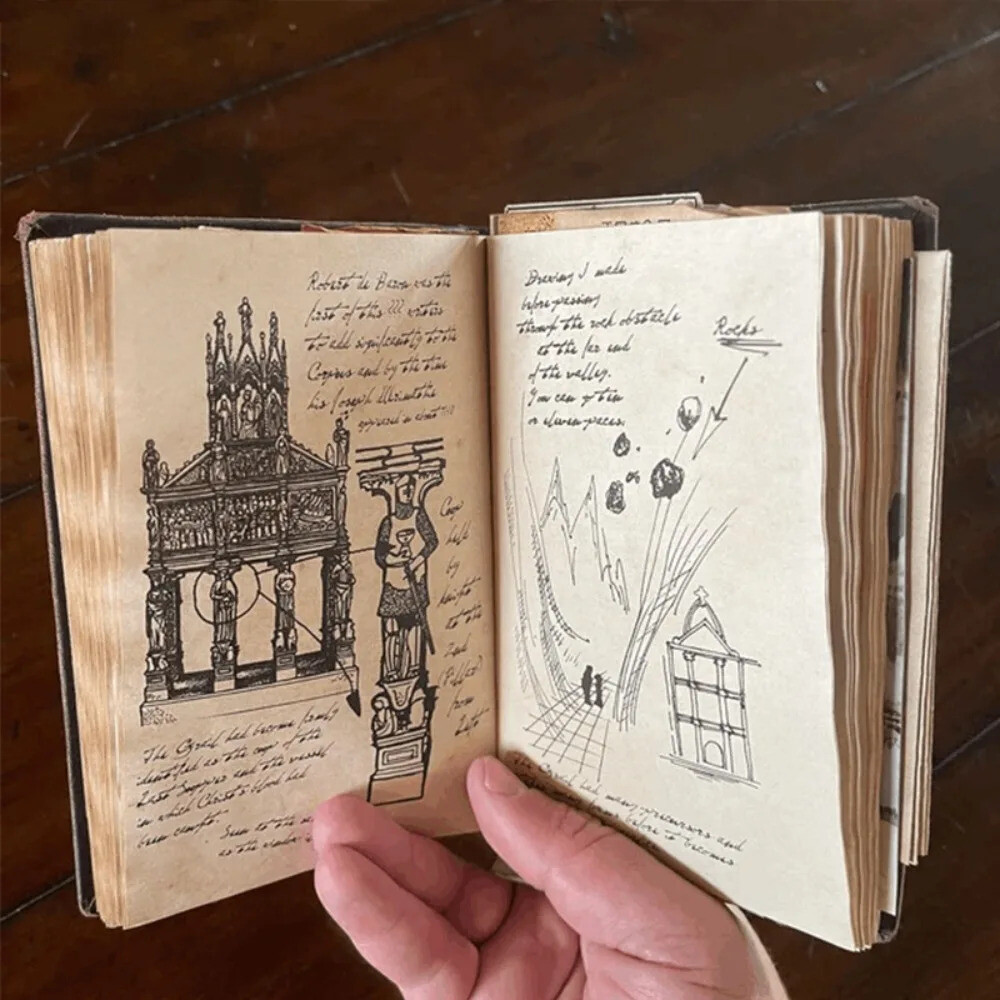 Robert de Boron was the
first of this ??? writers
to add significantly to the
Corpus and by the time
his Joseph d'Arimathe
appeared in about ???
Cup
held
by
knight
at the
2nd
(Pillar)
from
Left
The Grail had become firmly
identified as the cup of the
Last Supper and the vessel
in which Christ's blood had
been caught.
Seen at the
as the
Drawing I made
before passing
through the rock obstacle
at the far end
of the valley.
You can
or eleven paces.
Rocks
The Grail had many precursors and
forms before it becomes